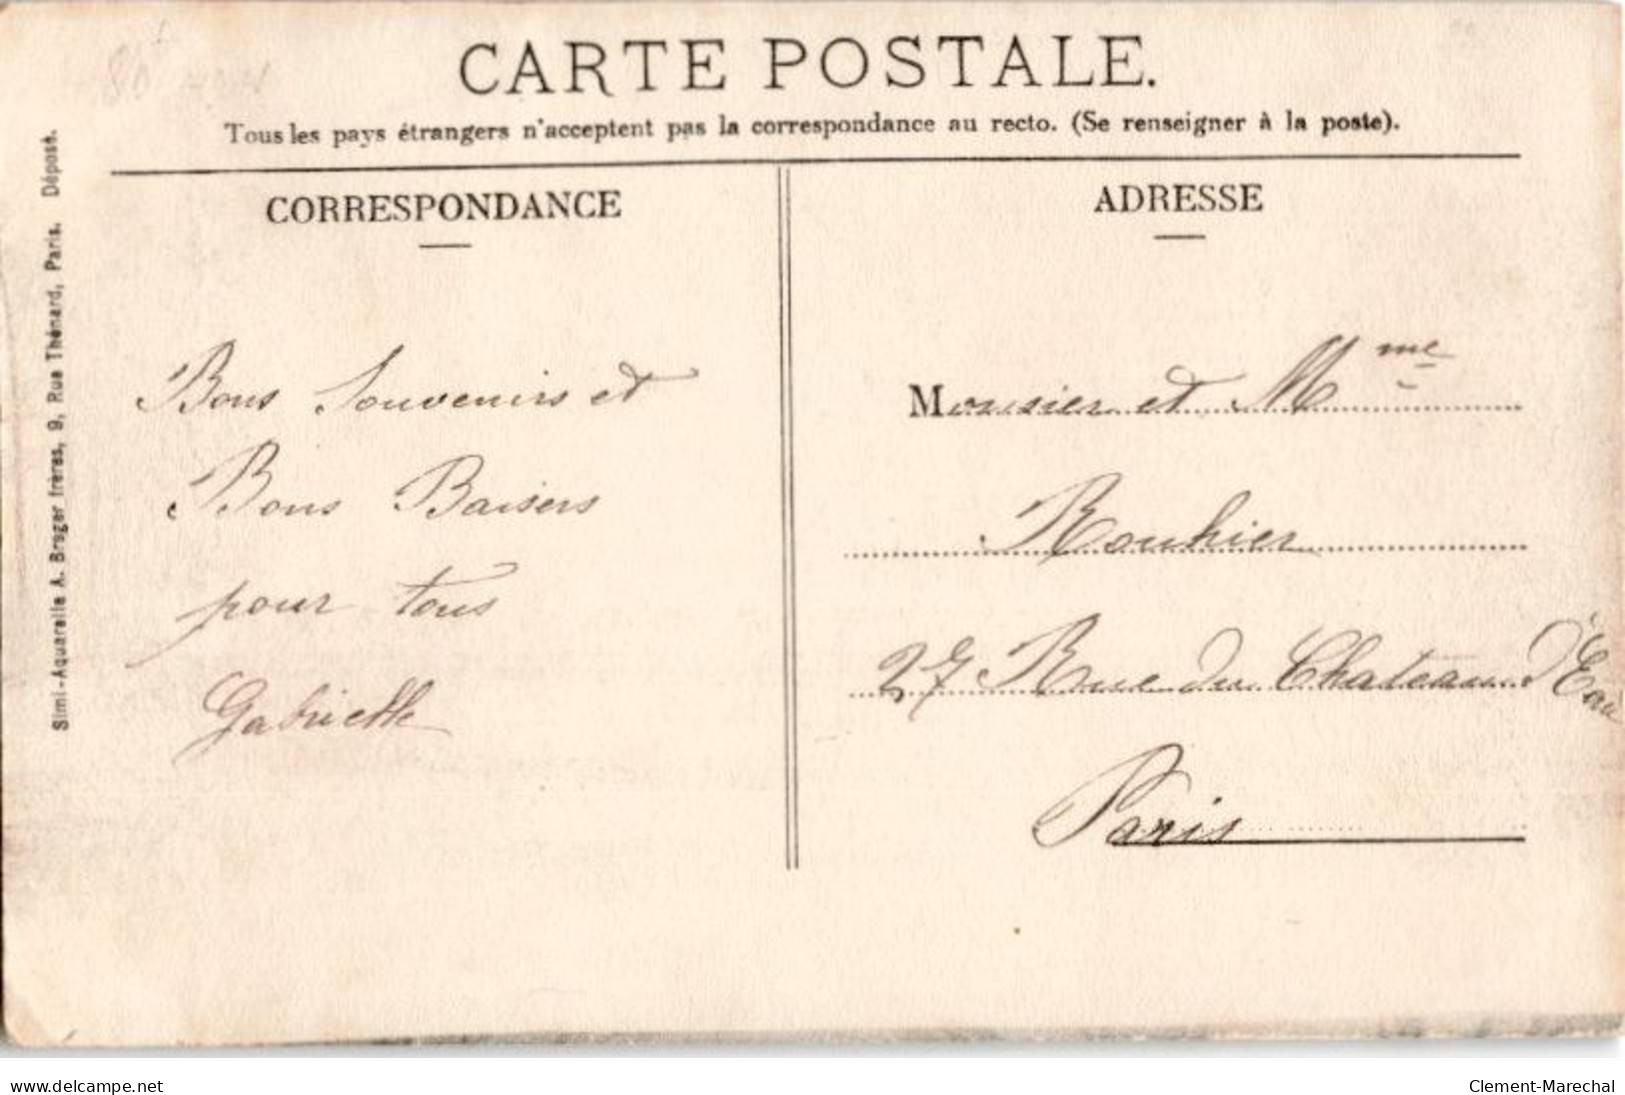 CARTE POSTALE.
Tous les pays étrangers n'acceptent pas la correspondance au recto. (Se renseigner à la poste).
Simi-Aquarelle A. Breger frères, 9, Rue Thénard, Paris. Déposé.
CORRESPONDANCE
Bons Souvenirs et
Bons Baisers
pour tous
Gabrielle
ADRESSE
Monsieur et Mme
Rouhier
27 Rue du Chateau d'Eau
Paris
www.delcampe.net
Clement-Marechal